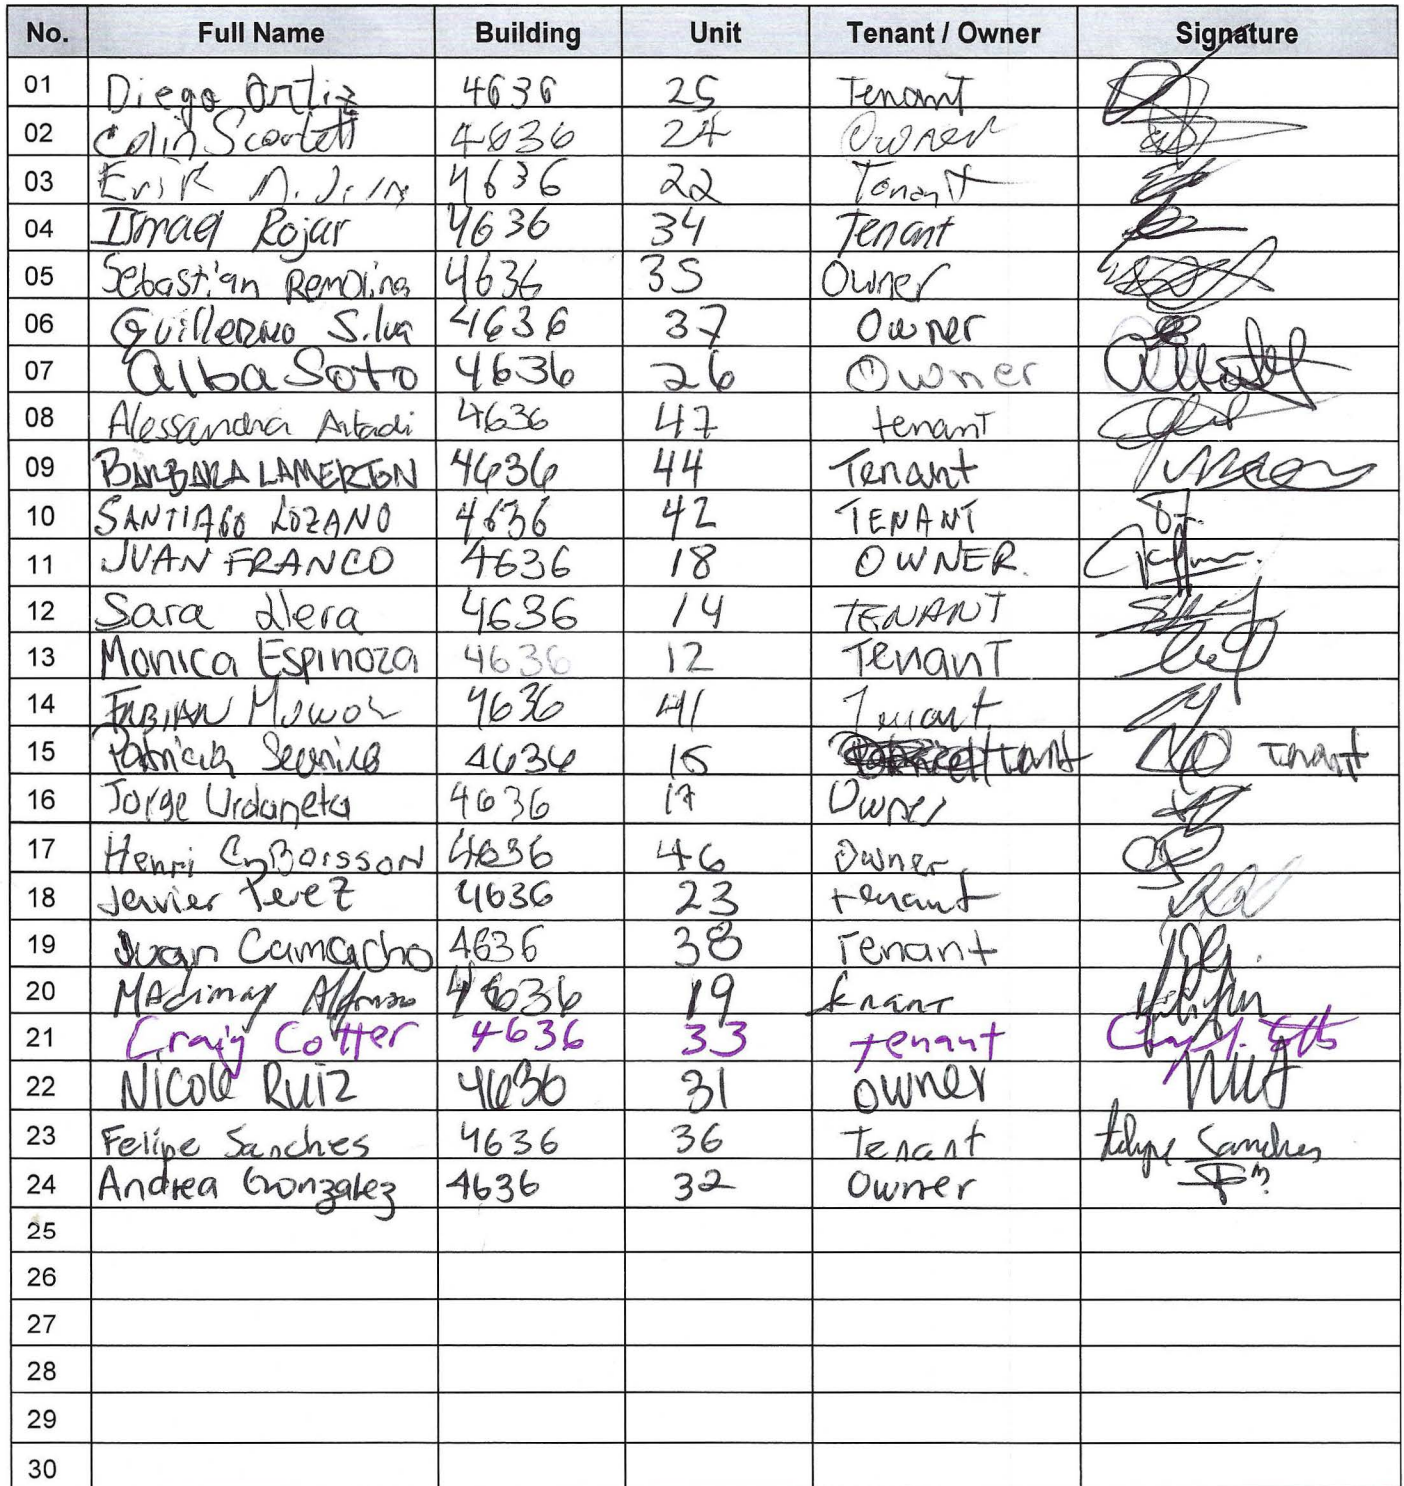 No. Full Name Building Unit Tenant / Owner Signature
01 Diego Ortiz 4636 25 Tenant
02 Colin Scarlett 4636 24 Owner
03 Erik 4636 22 Tenant
04 Ismael Rojar 4636 34 Tenant
05 Sebastian Remolina 4636 35 Owner
06 Guillermo Silva 4636 37 Owner
07 Alba Soto 4636 26 Owner
08 Alessandra Artadi 4636 47 tenant
09 BARBARA LAMERTON 4636 44 Tenant
10 SANTIAGO LOZANO 4636 42 TENANT
11 JUAN FRANCO 4636 18 OWNER.
12 Sara Llera 4636 14 TENANT
13 Monica Espinoza 4636 12 Tenant
14 FABIAN 4636 41 Tenant
15 Patricia 4636 Tenant
16 Jorge Urdaneta 4636 17 Owner
17 Henri 4636 46 Owner
18 Javier Perez 4636 23 tenant
19 Juan Camacho 4636 38 Tenant
20 Alfonzo 4636 19 tenant
21 Craig Cotter 4636 33 tenant
22 Nicole Ruiz 4636 31 owner
23 Felipe Sanches 4636 36 Tenant Felipe Sanches
24 Andrea Gonzalez 4636 32 Owner
25
26
27
28
29
30